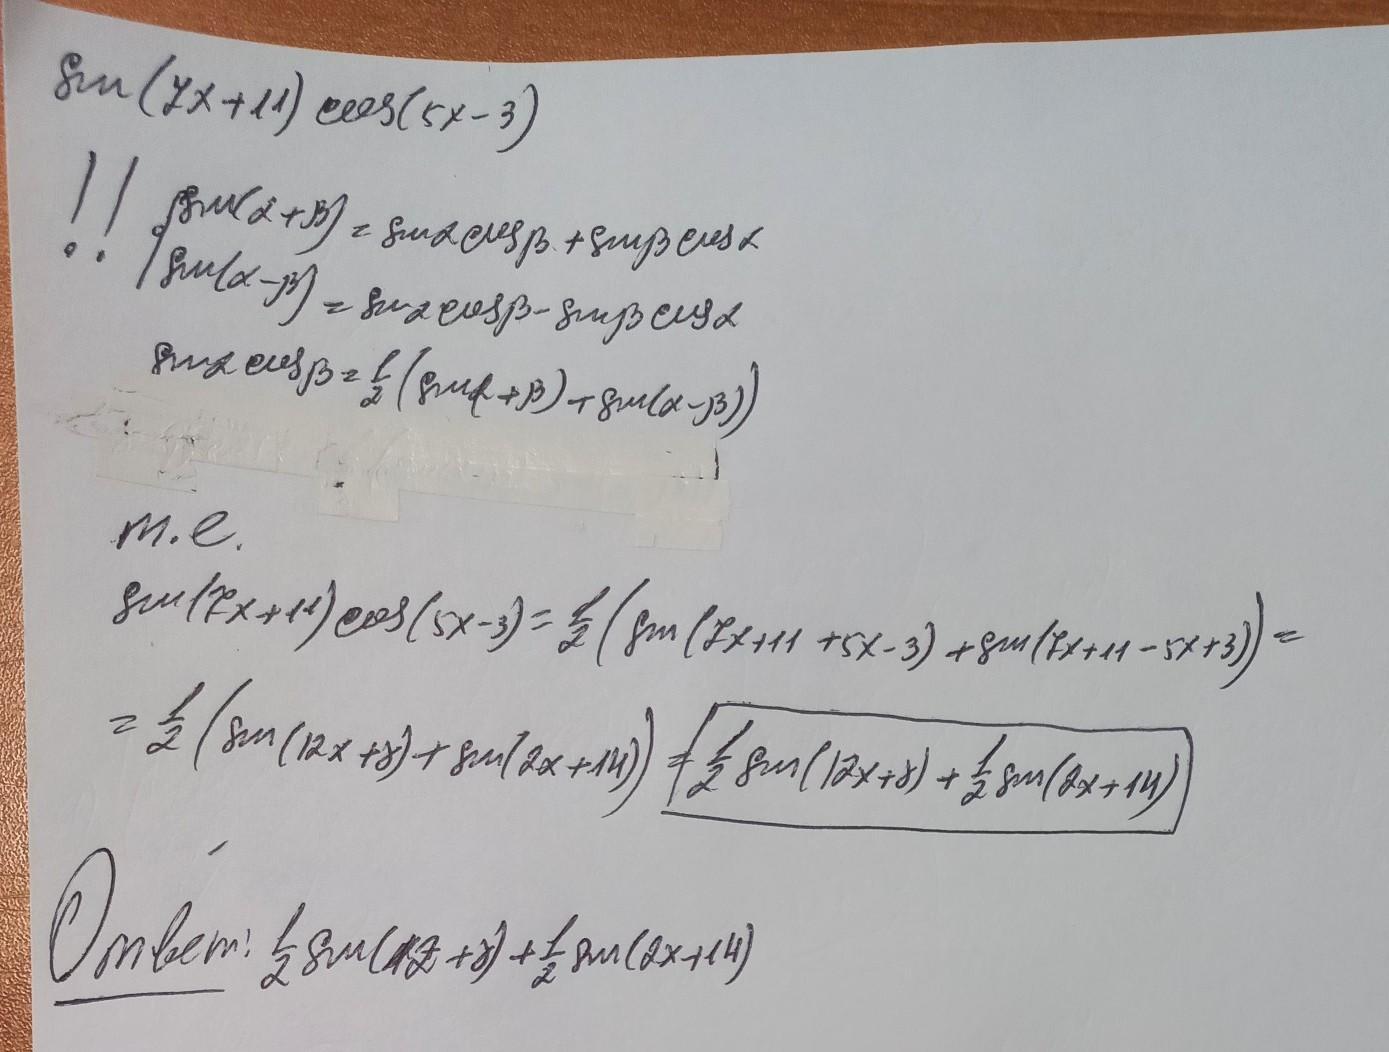 sin(7x+11) cos(5x-3)
!! sin(α+β) = sinα cosβ + sinβ cosα
sin(α-β) = sinα cosβ - sinβ cosα
sinα cosβ = 1/2 (sin(α+β) + sin(α-β))
т.е.
sin(7x+11) cos(5x-3) = 1/2 (sin(7x+11+5x-3) + sin(7x+11-5x+3)) =
= 1/2 (sin(12x+8) + sin(2x+14)) = 1/2 sin(12x+8) + 1/2 sin(2x+14)
Ответ: 1/2 sin(12+8) + 1/2 sin(2x+14)